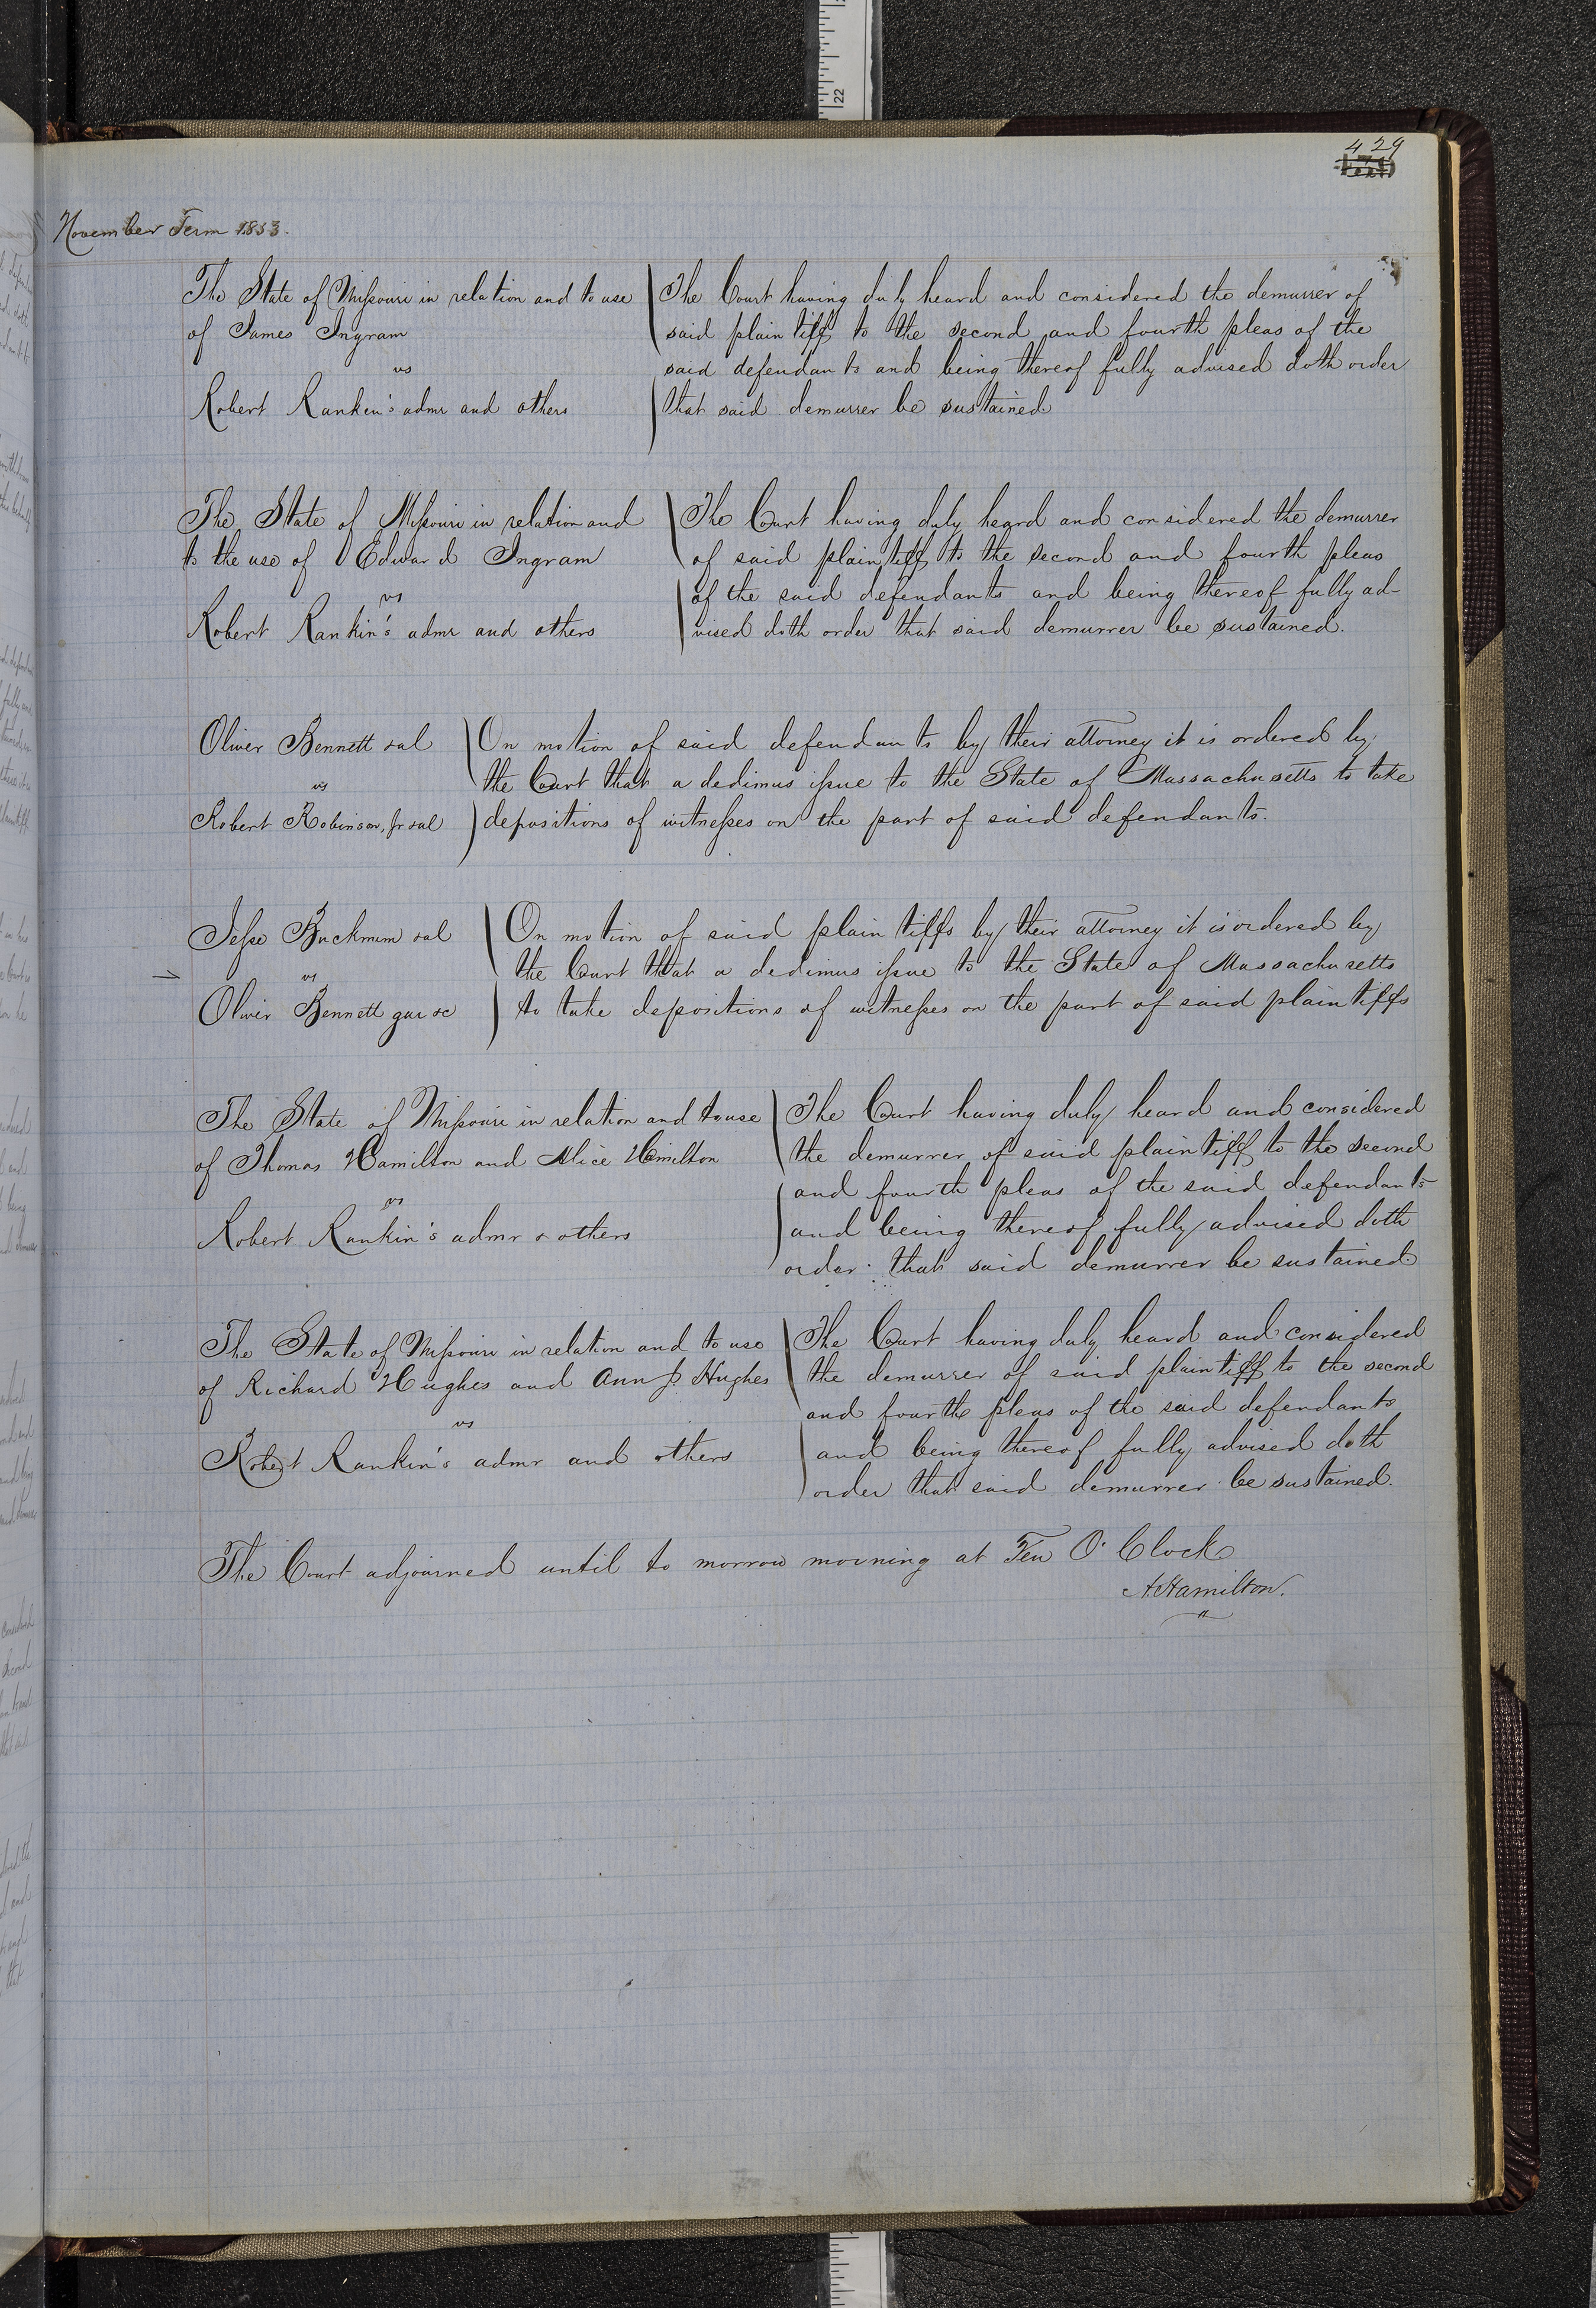 429
November Term 1853.
The State of Missouri in relation and to use
of James Ingram
vs
Robert Rankin's admr and others
The Court having duly heard and considered the demurrer of
said plaintiff to the second and fourth pleas of the
said defendants and being thereof fully advised doth order
that said demurrer be sustained
The State of Missouri in relation and
to the use of Edward Ingram
vs
Robert Rankin's admr and others
The Court having duly heard and considered the demurrer
of said plaintiff to the second and fourth pleas
of the said defendants and being thereof fully ad-
vised doth order that said demurrer be sustained.
Oliver Bennett &al
vs
Robert Robinson, Jr &al
On motion of said defendants by their attorney it is ordered by
the Court that a dedimus issue to the State of Massachusetts to take
depositions of witnesses on the part of said defendants.
Jesse Buckmum &al
vs
Oliver Bennett gar &c
On motion of said plaintiffs by their attorney it is ordered by
the Court that a dedimus issue to the State of Massachusetts
to take depositions of witnesses on the part of said plaintiffs
The State of Missouri in relation and to use
of Thomas Hamilton and Alice Hamilton
vs
Robert Rankin's admr & others
The Court having duly heard and considered
the demurrer of said plaintiff to the second
and fourth pleas of the said defendants
and being thereof fully advised doth
order that said demurrer be sustained
The State of Missouri in relation and to use
of Richard Hughes and Ann P. Hughes
vs
Robert Rankin's admr and others
The Court having duly heard and considered
the demurrer of said plaintiff to the second
and fourth pleas of the said defendants
and being thereof fully advised doth
order that said demurrer be sustained.
The Court adjourned until to morrow morning at Ten O'Clock
A. Hamilton.
22